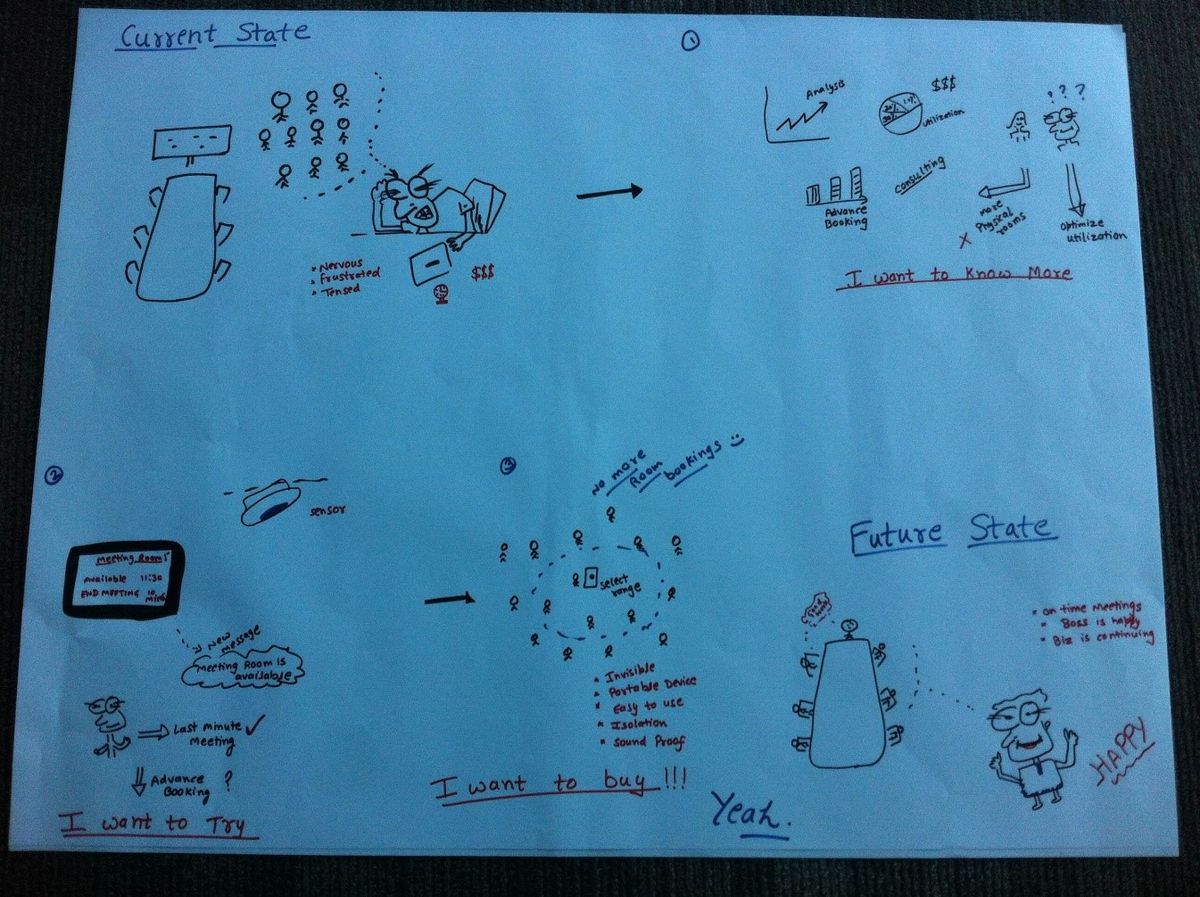 Current State
• Nervous
• Frustrated
• Tensed
$$$
①
Analysis
$$$
Utilization
Advance
Booking
Consulting
? ? ?
More
Physical
rooms
X
Optimize
Utilization
I want to Know More
②
sensor
Meeting Room 5
Available 11:30
END MEETING 10
Mins
New
message
Meeting Room is
available
Last minute ✓
Meeting
Advance ?
Booking
I want to Try
③
No more
Room
bookings
select
range
* Invisible
* Portable Device
* Easy to use
* Isolation
* Sound Proof
I want to buy !!!
Future State
* On time Meetings
* Boss is happy
* Biz is continuing
HAPPY
Yeah.